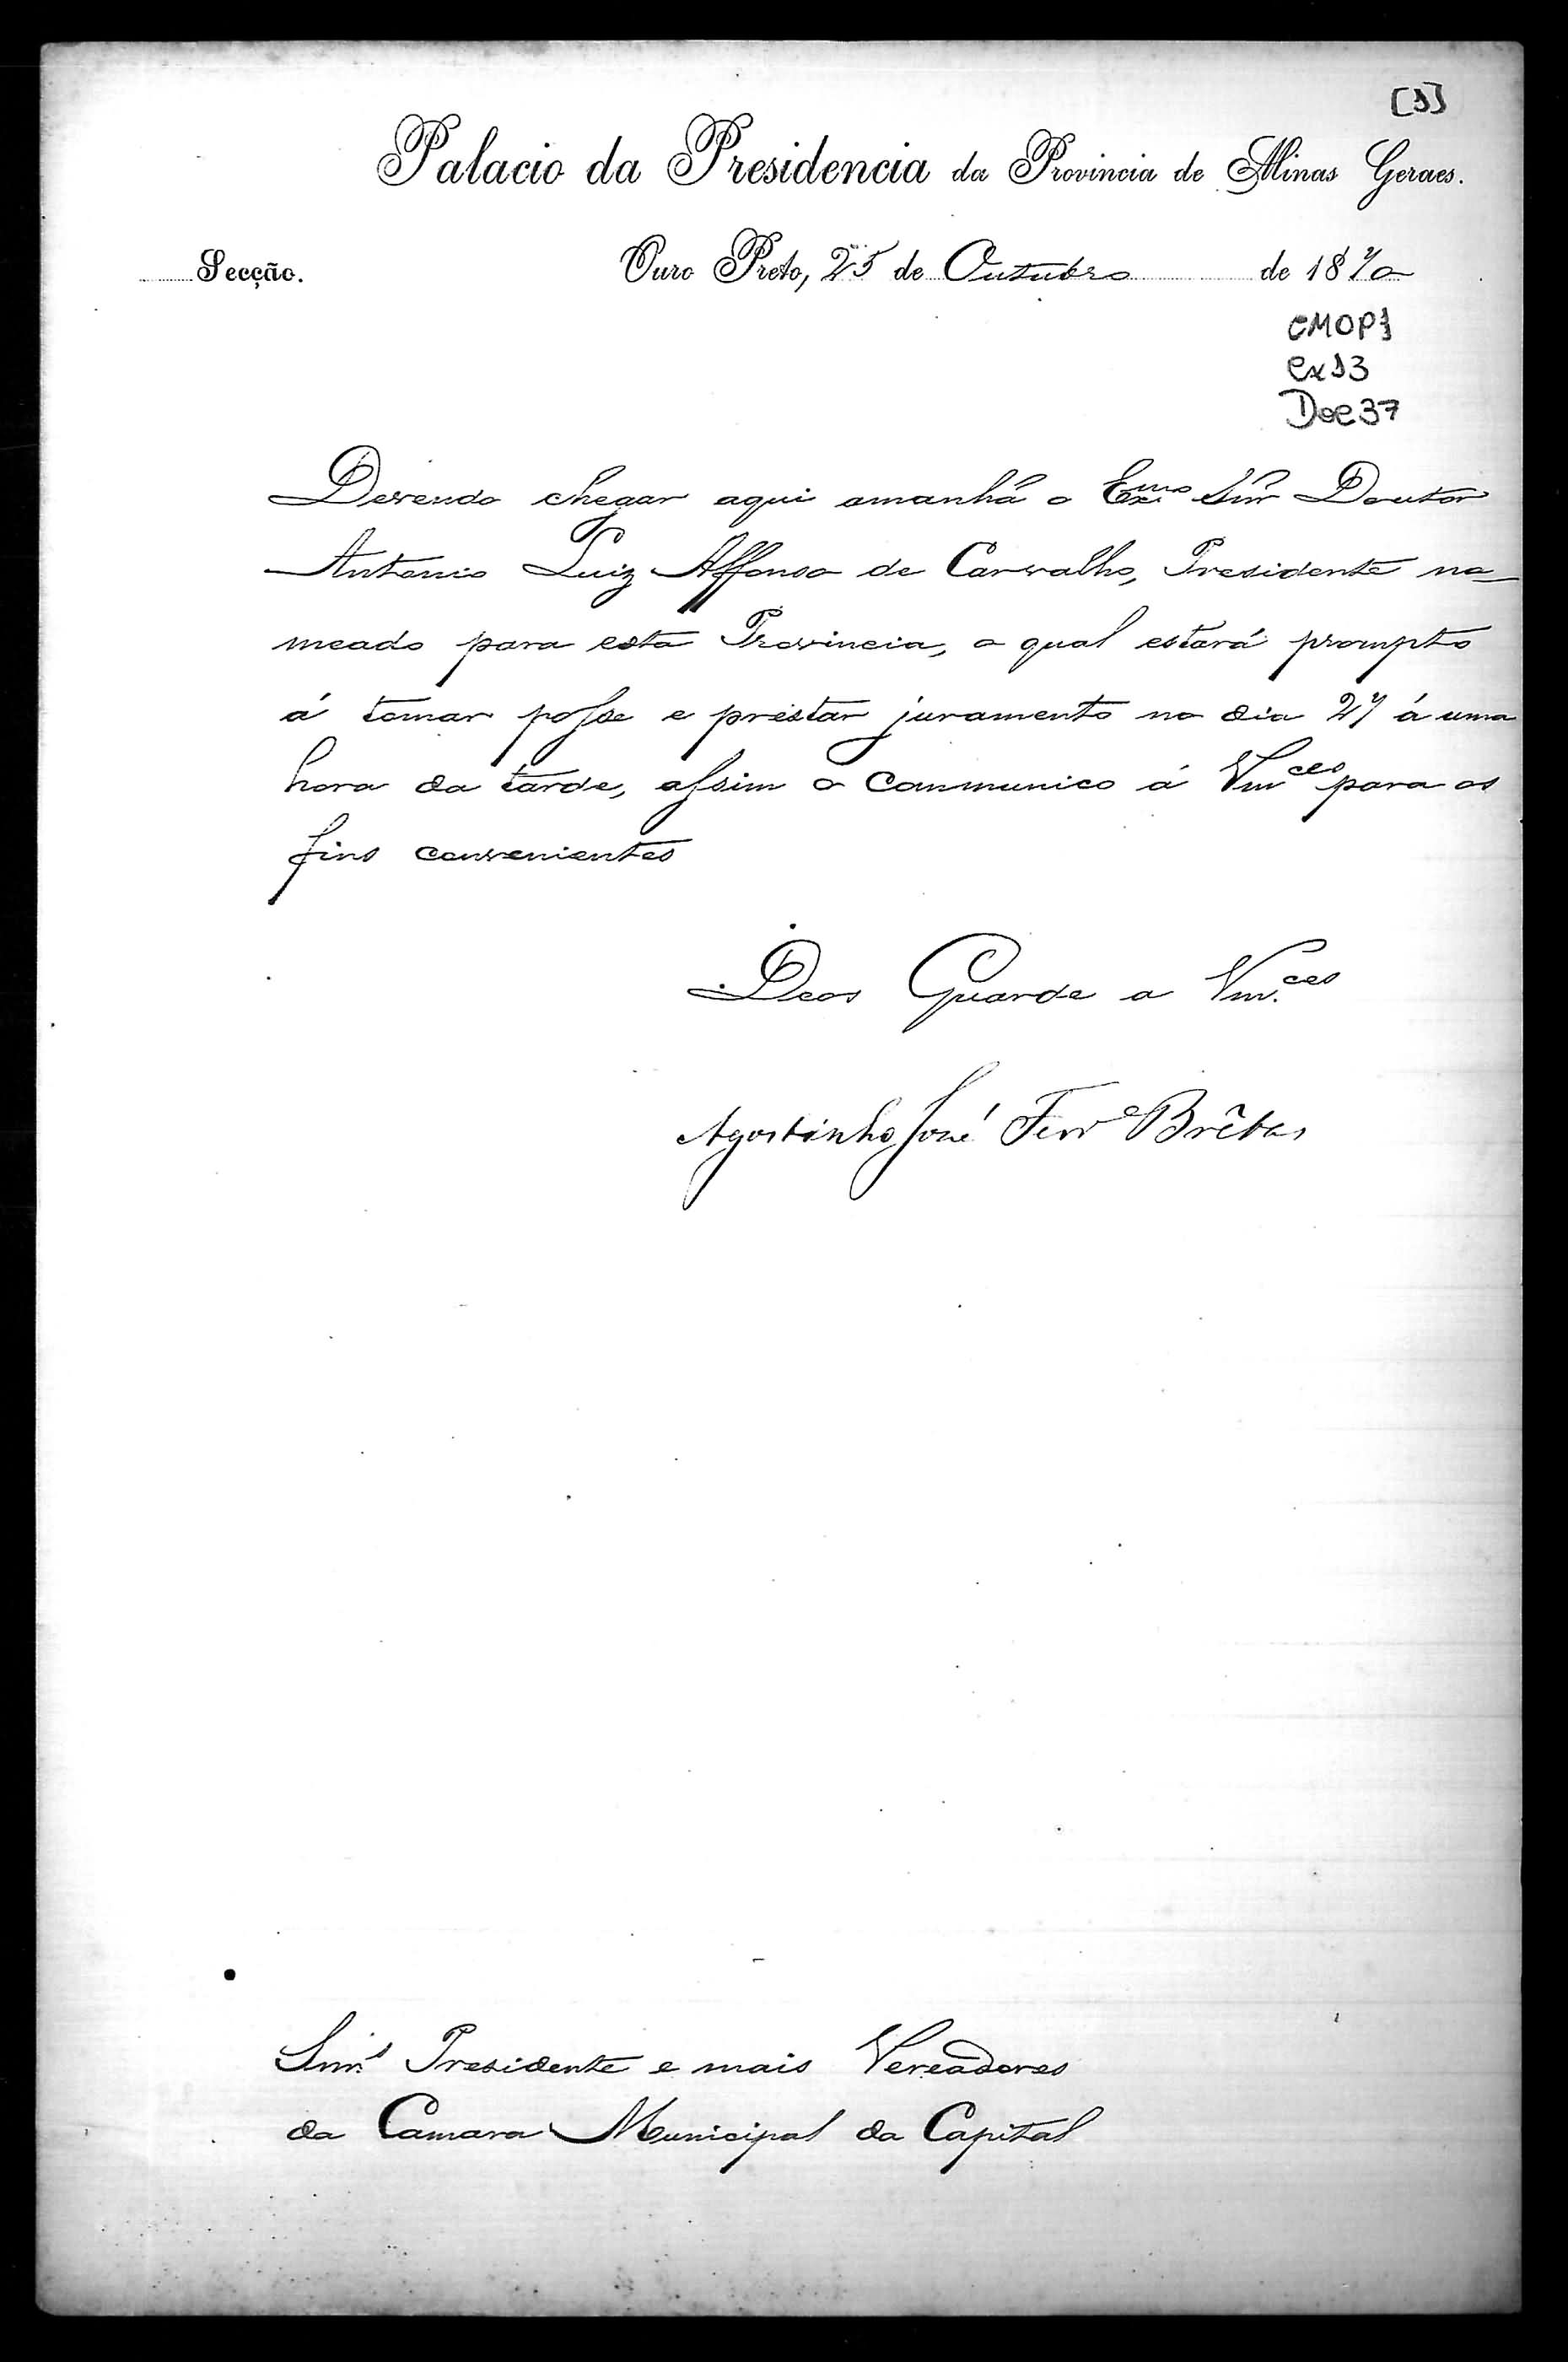 [1]
Palacio da Presidencia da Provincia de Minas Geraes.
Secção.
Ouro Preto, 25 de Outubro de 1870
CMOP1
Cx13
Doc37
Devendo chegar aqui amanhã o Exmo Snr Doutor
Antonio Luiz Affonso de Carvalho, Presidente no-
meado para esta Provincia, o qual estará prompto
á tomar posse e prestar juramento no dia 27 á uma
hora da tarde, assim o communico á Vmces para os
fins convenientes
Deos Guarde a Vm.ces
Agostinho José Ferra Brêtas
Snrs Presidente e mais Vereadores
da Camara Municipal da Capital